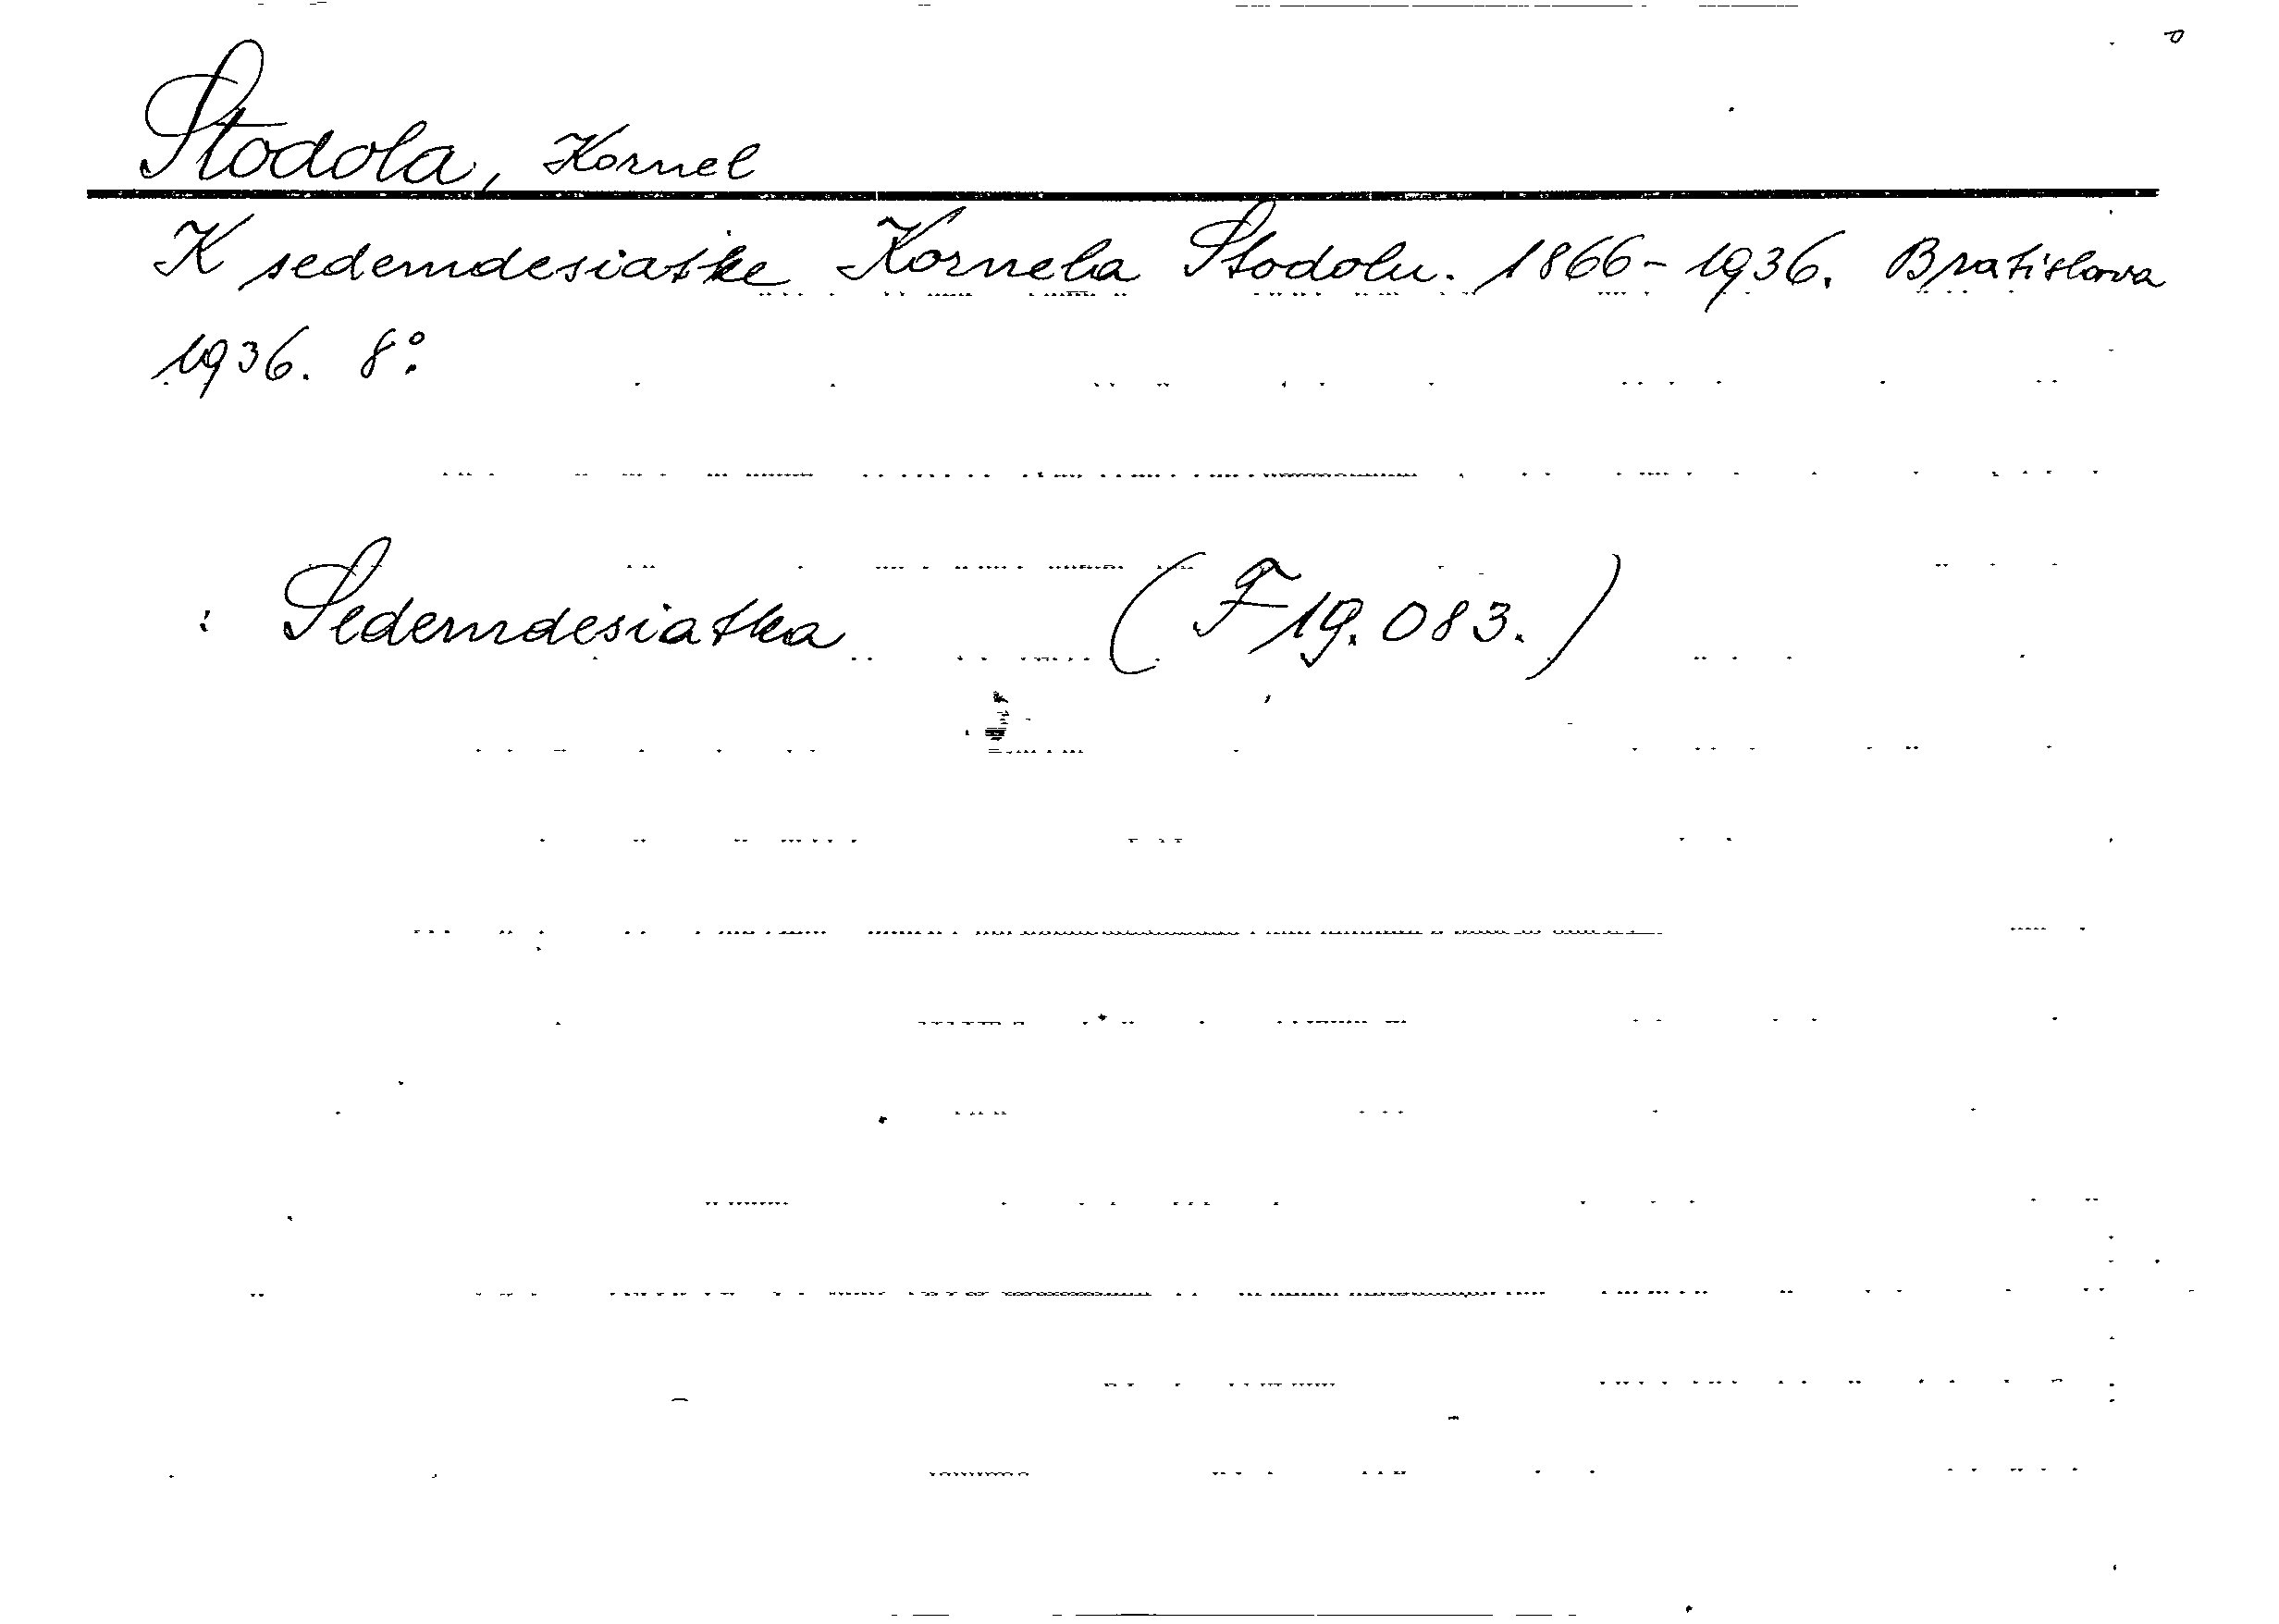 Stodola, Kornel
K sedemdesiatke Kornela Stodolu. 1866-1936. Bratislava
1936. 8°.
: Sedemdesiatka (F 19.083.)